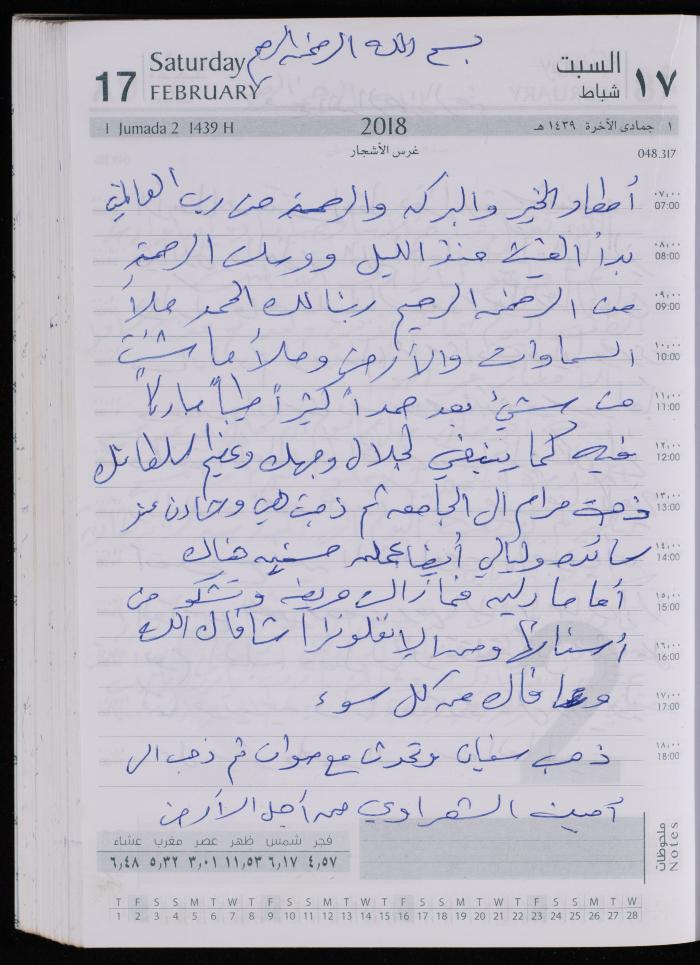 بسم الله الرحمن الرحيم
17 Saturday FEBRUARY السبت شباط ١٧
1 Jumada 2 1439 H 2018 ١ جمادى الآخرة ١٤٣٩ هـ
غرس الأشجار 048.317
أمطار الخير والبركه والرحمة من رب العالمين ٠٧:٠٠ 07:00
بدأ الغيث منذ الليل الرحمة ٠٨:٠٠ 08:00
من الرحمن الرحيم ربنا لك الحمد ملأ ٠٩:٠٠ 09:00
السماوات والأرض وملأ ما شئت ١٠:٠٠ 10:00
من شيء بعد حمداً كثيراً طيباً مباركاً ١١:٠٠ 11:00
فيه كما ينبغي لجلال وجهك وعظيم سلطانك ١٢:٠٠ 12:00
ذهبت مرام الى الجامعه ثم ذهبت هي عند ١٣:٠٠ 13:00
سائده وليالي أيضاً هناك ١٤:٠٠ 14:00
أما ماريه فما زالت مريضه وتشكو من ١٥:٠٠ 15:00
أسنانها ومن الإنفلونزا شافاك الله ١٦:٠٠ 16:00
وعافاك من كل سوء ١٧:٠٠ 17:00
ذهب سفيان وتحدث مع صوان ثم ذهب الى ١٨:٠٠ 18:00
أمين الشعراوي من أجل الأرض
ملحوظات Notes
فجر شمس ظهر عصر مغرب عشاء
٤,٥٧ ٦,١٧ ١١,٥٣ ٣,٠١ ٥,٣٢ ٦,٤٨
T F S S M T W T F S S M T W T F S S M T W T F S S M T W
1 2 3 4 5 6 7 8 9 10 11 12 13 14 15 16 17 18 19 20 21 22 23 24 25 26 27 28